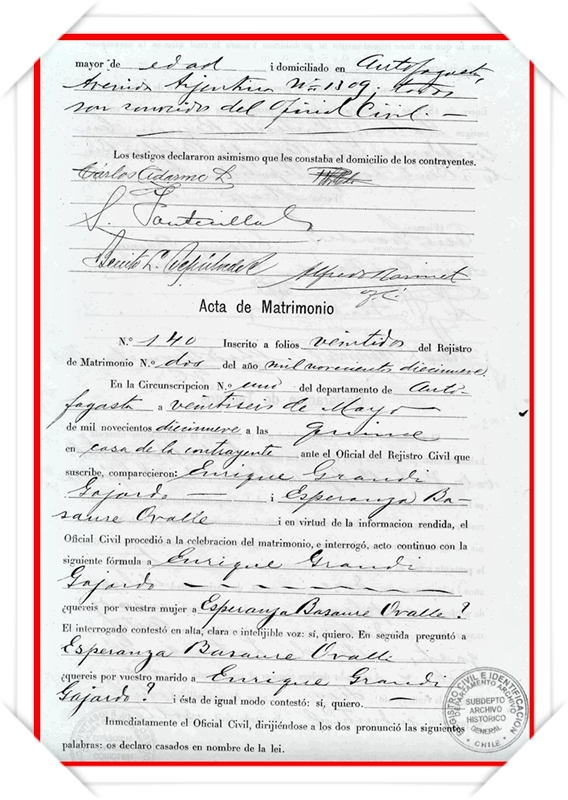 mayor de edad i domiciliado en Antofagasta,
Avenida Arjentina Nº 1309, todos
son conocidos del Oficial Civil. —
Los testigos declararon asimismo que les constaba el domicilio de los contrayentes.
Carlos Adarme
S. Fontecilla
Benito L. Sepúlveda R
Alfredo
O. C.
Acta de Matrimonio
N.º 140 Inscrito a folios veintidos del Registro
de Matrimonio N.º dos del año mil novecientos diecinueve.
En la Circunscripcion N.º uno del departamento de Anto-
fagasta a veintiseis de Mayo
de mil novecientos diecinueve a las quince
en casa de la contrayente ante el Oficial del Registro Civil que
suscribe, comparecieron: Enrique Grandi
Gajardo — i Esperanza Ba-
saure Ovalle i en virtud de la informacion rendida, el
Oficial Civil procedió a la celebracion del matrimonio, e interrogó, acto continuo con la
siguiente fórmula a Enrique Grandi
Gajardo — — — — —
¿quereis por vuestra mujer a Esperanza Basaure Ovalle?
El interrogado contestó en alta, clara e intelijible voz: sí, quiero. En seguida preguntó a
Esperanza Basaure Ovalle
¿quereis por vuestro marido a Enrique Grandi
Gajardo? i ésta de igual modo contestó: sí, quiero. —
Inmediatamente el Oficial Civil, dirijiéndose a los dos pronunció las siguientes
palabras: os declaro casados en nombre de la lei.
REGISTRO CIVIL E IDENTIFICACION
DEPARTAMENTO ARCHIVO
SUBDEPTO
ARCHIVO
HISTORICO
GENERAL
CHILE